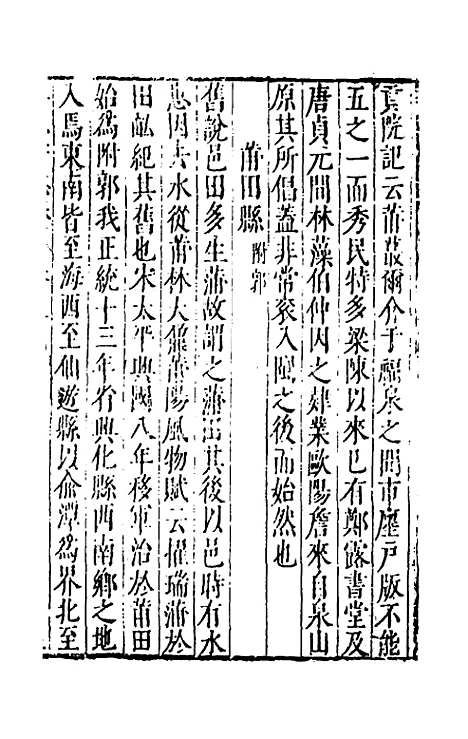 貢院記云莆蕞爾介于福泉之間市廛戸版不能
五之一而秀民特多梁陳以來已有鄭露書堂及
唐貞元間林藻伯仲因之肄業歐陽詹來自泉山
原其所倡蓋非常衮入閩之後而始然也
莆田縣附郭
舊說邑田多生蒲故謂之蒲田其後以邑時有水
患因去水從莆林大鼐莆陽風物賦云擢瑞蒲於
田畝紀其舊也宋太平興國八年移軍治於莆田
始爲附郭我正統十三年省興化縣西南鄉之地
入焉東南皆至海西至仙遊縣以俞潭爲界北至